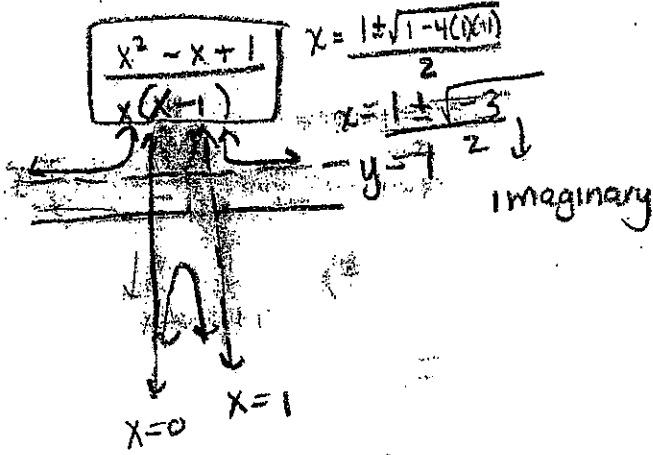 x² - x + 1
x(x-1)
x = 1 ± √1 - 4(1)(1)
2
x = 1 ± √-3
2
y = 1
imaginary
x=0
x=1